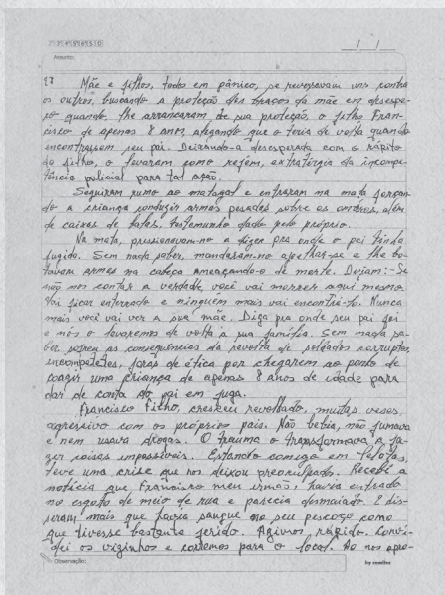 Assunto:
Mãe e filhos, todos em pânico, se revesavam uns contra
os outros, buscando a proteção dos braços da mãe em desespe-
ro quando lhe arrancaram de sua proteção, o filho Fran-
cisco de apenas 8 anos, alegando que o teria de volta quando
encontrassem seu pai. Deixando-a desesperada com o rápito
do filho, o levaram como refém, extratérgia da incompe-
tência policial para tal ação.
Seguiram rumo ao matagal e entraram na mata forçan-
do a criança conduzir armas pesadas sobre os ombros, além
de caixas de balas, testemunho dado pelo próprio.
Na mata, pressionavam-no a dizer pra onde o pai tinha
fugido. Sem nada saber, mandaram-no ajoelhar-se e lhe bo-
tavam armas na cabeça ameaçando-o de morte. Diziam: - Se
não nos contar a verdade, você vai morrer aqui mesmo
Vai ficar enterrado e ninguém mais vai encontrá-lo. Nunca
mais você vai ver a sua mãe. Diga pra onde seu pai foi
e nós o levaremos de volta a sua família. Sem nada sa-
ber sofreu as consequências da revolta de soldados corruptos,
incompetetes, foras de ética por chegarem ao ponto de
coagir uma criança de apenas 8 anos de idade para
dar de conta do pai em fuga.
Francisco Filho, cresceu revoltado, muitas veses
agressivo com os próprios pais. Não bebia, não fumava
e nem usava drogas. O trauma o transformava a fa-
zer coisas impossíveis. Estando comigo em Pelotas,
teve uma crise que nos deixou preoculpado. Recebi a
notícia que Francisco meu irmão: havia entrado
no esgoto do meio de rua e parecia desmaiado. E dis-
seram mais que havia sangue no seu pescoço como
que tivesse bastante ferido. Agimos rápido. Convi-
dei os viginhos e corremos para o local. Ao nos apro-
Observação:
by credeal